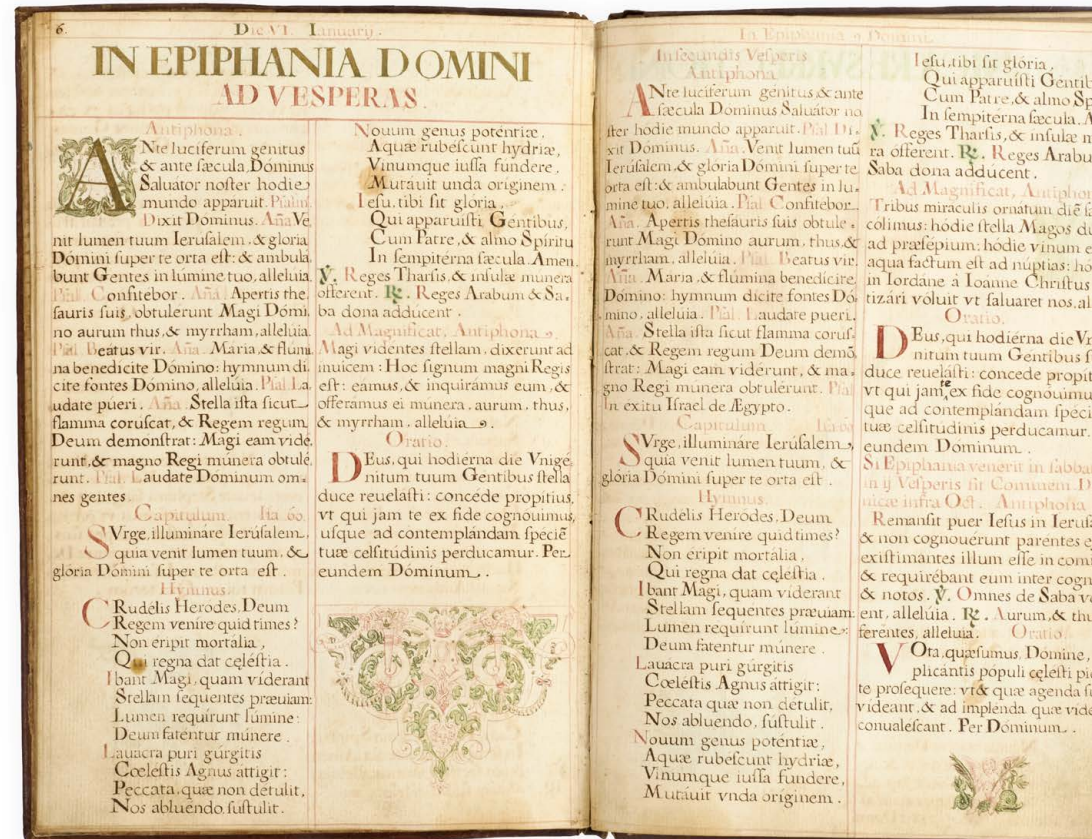 6.
Die VI. Ianuarij.
IN EPIPHANIA DOMINI
AD VESPERAS.
Antiphona.
ANte luciferum genitus
& ante sæcula, Dóminus
Saluátor noster hodie
mundo apparuit. Psalm.
Dixit Dominus. Aña Ve
nit lumen tuum Ierúsalem, & gloria
Dómini super te orta est: & ambula
bunt Gentes in lúmine tuo, alleluia.
Psal. Confitebor. Aña. Apertis the
sauris suis, obtulérunt Magi Dómi,
no aurum thus, & myrrham, allelúia.
Psal. Beátus vir. Aña. Maria, & flúmi
na benedicite Dómino: hymnum di
cite fontes Dómino, alleluia. Psal. La
udate púeri. Aña. Stella ista sicut
flamma coruscat, & Regem regum
Deum demonstrat: Mági eam vidé,
runt, & magno Regi múnera obtulé,
runt. Psal. Laudate Dominum om=
nes gentes.
Capitulum. Isa 60.
SVrge, illumináre Ierúsalem,
quia venit lumen tuum, &
glória Dómini super te orta est.
Hymnus.
CRudélis Heródes, Deum
Regem veníre quid times?
Non éripit mortália,
Qui regna dat cęléstia.
Ibant Magi, quam víderant
Stellam sequentes præuiam:
Lumen requírunt lúmine:
Deum fatentur múnere.
Lauacra puri gúrgitis
Cœléstis Agnus áttigit:
Peccata, quæ non détulit,
Nos abluéndo, sústulit.
Nouum genus poténtiæ,
Aquæ rubescunt hydriæ,
Vinumque iussa fundere,
Mutáuit unda originem.
Iesu, tibi sit glória,
Qui apparuísti Gentibus,
Cum Patre, & almo Spíritu
In sempitérna sæcula. Amen.
℣. Reges Tharsis, & insulæ múnera
ófferent. ℟. Reges Arabum & Sa,
ba dona addúcent.
Ad Magnificat, Antiphona.
Magi vidéntes stellam, dixerunt ad
inuicem: Hoc signum magni Regis
est: eámus, & inquirámus eum, &
offerámus ei múnera, aurum, thus,
& myrrham, allelúia.
Oratio.
DEus, qui hodiérna die Vnigé
nitum tuum Gentibus stella
duce reuelásti: concéde propítius,
vt qui jam te ex fide cognóuimus,
usque ad contemplándam spéciē
tuæ celsitúdinis perducamur. Per
eundem Dóminum.
In Epiphania Domini.
In secundis Vesperis
Antiphona.
ANte lucíferum genitus, & ante
sæcula Dóminus Saluátor no
ster hodie mundo apparuit. Psal Di,
xit Dóminus. Aña. Venit lumen tuū
Ierúsalem, & glória Dómini super te
orta est: & ambulabunt Gentes in lu,
mine tuo, alleluia. Psal Confitebor.
Aña. Apertis thesáuris suis obtule,
runt Magi Dómino aurum, thus, &
myrrham, allelúia. Psal. Beatus vir.
Aña. Maria, & flúmina benedícite
Dómino: hymnum dicite fontes Dó,
mino, allelúia. Psal. Laudate pueri.
Aña. Stella ista sicut flamma corus,
cat, & Regem regum Deum demō,
strat: Magi eam vidérunt, & ma,
gno Regi múnera obtulérunt. Psal
In éxitu Israel de Ægypto.
Capitulum. Isa 60
SVrge, illumináre Ierúsalem,
quia venit lumen tuum, &
glória Dómini super te orta est.
Hymnus.
CRudélis Heródes, Deum
Regem veníre quid times?
Non éripit mortália,
Qui regna dat cęléstia.
Ibant Magi, quam viderant
Stellam sequentes præuiam:
Lumen requírunt lúmine:
Deum fatentur múnere.
Lauacra puri gúrgitis
Cœléstis Agnus áttigit:
Peccata quæ non détulit,
Nos abluendo, sústulit.
Nouum genus poténtiæ,
Aquæ rubescunt hydriæ,
Vinumque iussa fundere,
Mutáuit vnda oríginem.
Iesu, tibi sit glória,
Qui apparuísti Gentib
Cum Patre, & almo Sp
In sempitérna sæcula. A
℣. Reges Tharsis, & insulæ m
ra ofterent. ℟. Reges Arabu
Saba dona adducent.
Ad Magnificat, Antipho
Tribus miraculis ornátum diē s
cólimus: hódie stella Magos du
ad præsépium: hódie vinum e
aqua factum est ad núptias: ho
in Iordáne à Ioánne Christus
tizári vóluit vt saluaret nos, al
Oratio.
DEus, qui hodiérna die Vn
nitum tuum Gentibus s
duce reuelásti: concede propít
vt qui jam te ex fide cognóuimu
que ad contemplándam spéci
tuæ celsitúdinis perducamur.
eundem Dóminum.
Si Epiphania venerit in sabba
in ij Vesperis fit Commem. D
nicæ infra Oct. Antiphona
Remansit puer Iesus in Ierus
& non cognouérunt paréntes e
existimántes illum esse in com
& requirébant eum inter cogn
& notos. ℣. Omnes de Saba ve
ent, allelúia. ℟. Aurum, & thu
ferentes, alleluia. Oratio.
VOta, quæsumus, Dómine,
plicántis pópuli cęlésti pi
te proséquere: vt & quæ agenda
vídeant, & ad implénda quæ víde
conualéscant. Per Dóminum.